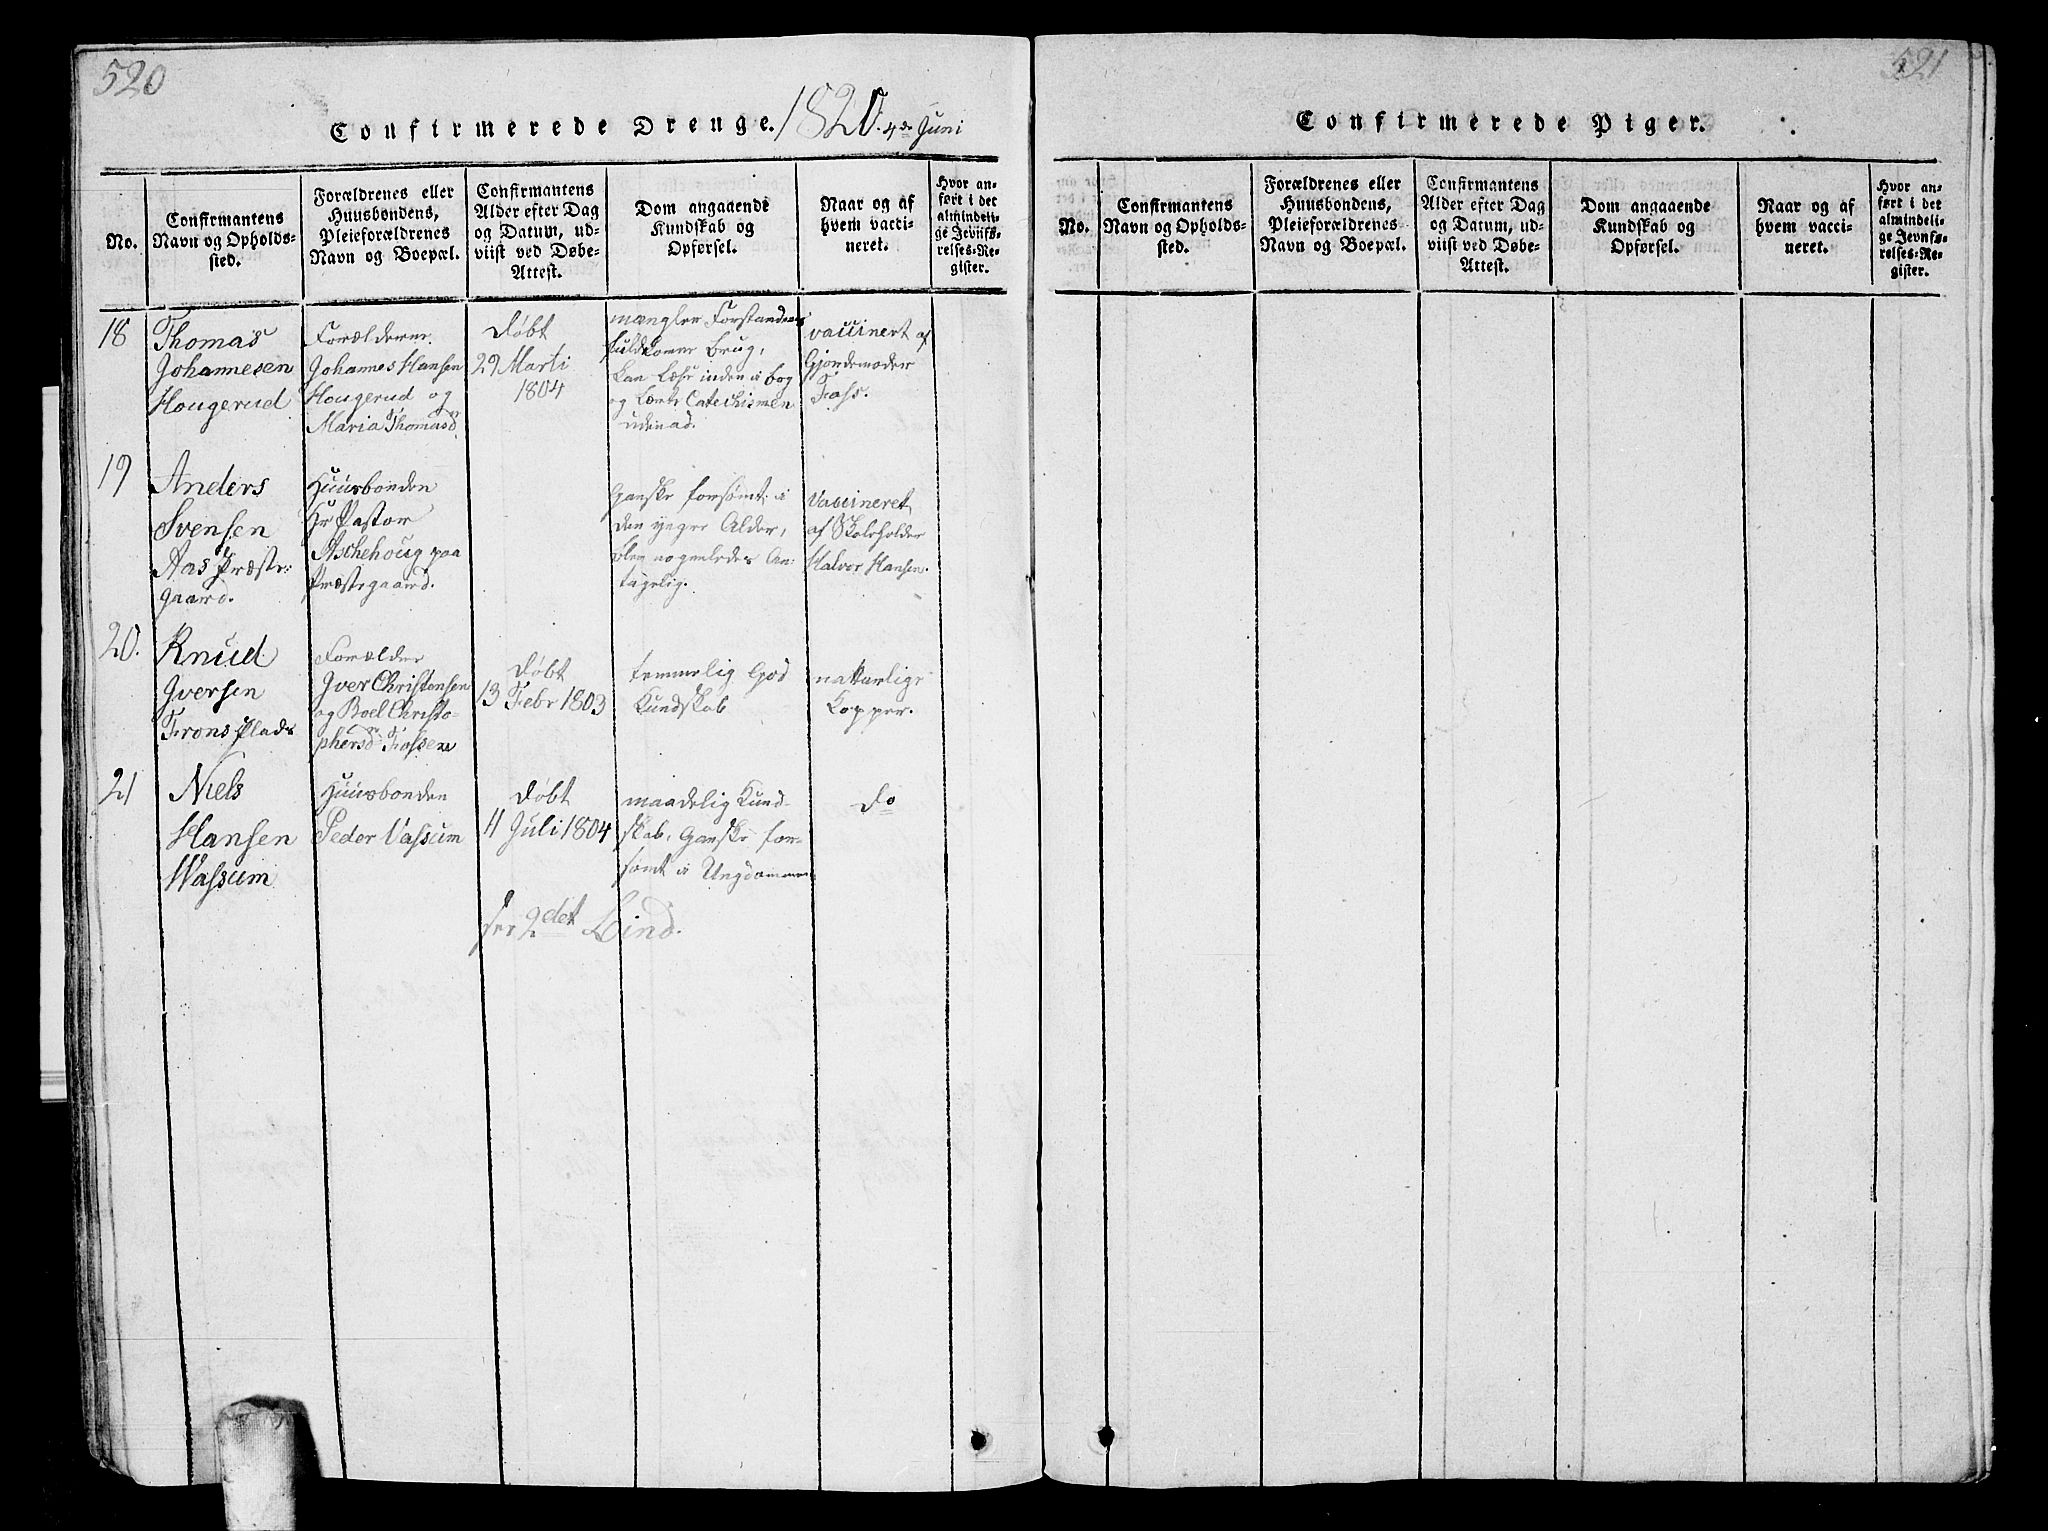 520
Confirmerede Drenge. 1820. 4de Juni
No.
Confirmantens
Navn og Opholds-
sted.
Forældrenes eller
Huusbondens,
Pleieforældrenes
Navn og Boepæl.
Confirmantens
Alder efter Dag
og Datum, ud-
viist ved Døbe-
Attest.
Dom angaaende
Kundskab og
Opførsel.
Naar og af
hvem vacci-
neret.
Hvor an-
ført i det
almindeli-
ge Jevnfø-
relses-Re-
gister.
18
Thomas
Johannesen
Hougerud
Forælderne
Johannes Hansen
Hougerud og
Maria Thomasd.
døbt
29 Marti
1804
mangler Forstandens
fuldkomne brug,
kan læse inden i bog
og lært Catechismen
udenad.
vaccinert af
Gjordemoder
Foss.
19
Anders
Svensen
Aas Præste-
gaard.
Huusbonden
Hr Pastor
Aschehoug paa
Præstegaard.
Ganske forsømt i
den yngre Alder,
blev nogenledes An-
tagelig.
Vaccineret
af Skoleholder
Halvor Hansen.
20.
Knud
Iversen
Frons Plads
Forælder
Iver Christensen
og Boel Christo-
phersd. Fossen
døbt
13 Febr 1803
temmelig God
Kundskab
naturlige
Kopper.
21
Niels
Hansen
Wassum
Huusbonden
Peder Vassum
døbt
11 Juli 1804
maadelig Kund-
skab, Ganske for-
sømt i Ungdommen
do
see 2det Bind.
521
Confirmerede Piger.
No.
Confirmantens
Navn og Opholds-
sted.
Forældrenes eller
Huusbondens,
Pleieforældrenes
Navn og Boepæl.
Confirmantens
Alder efter Dag
og Datum, ud-
viist ved Døbe-
Attest.
Dom angaaende
Kundskab og
Opførsel.
Naar og af
hvem vacci-
neret.
Hvor an-
ført i det
almindeli-
ge Jevnfø-
relses-Re-
gister.